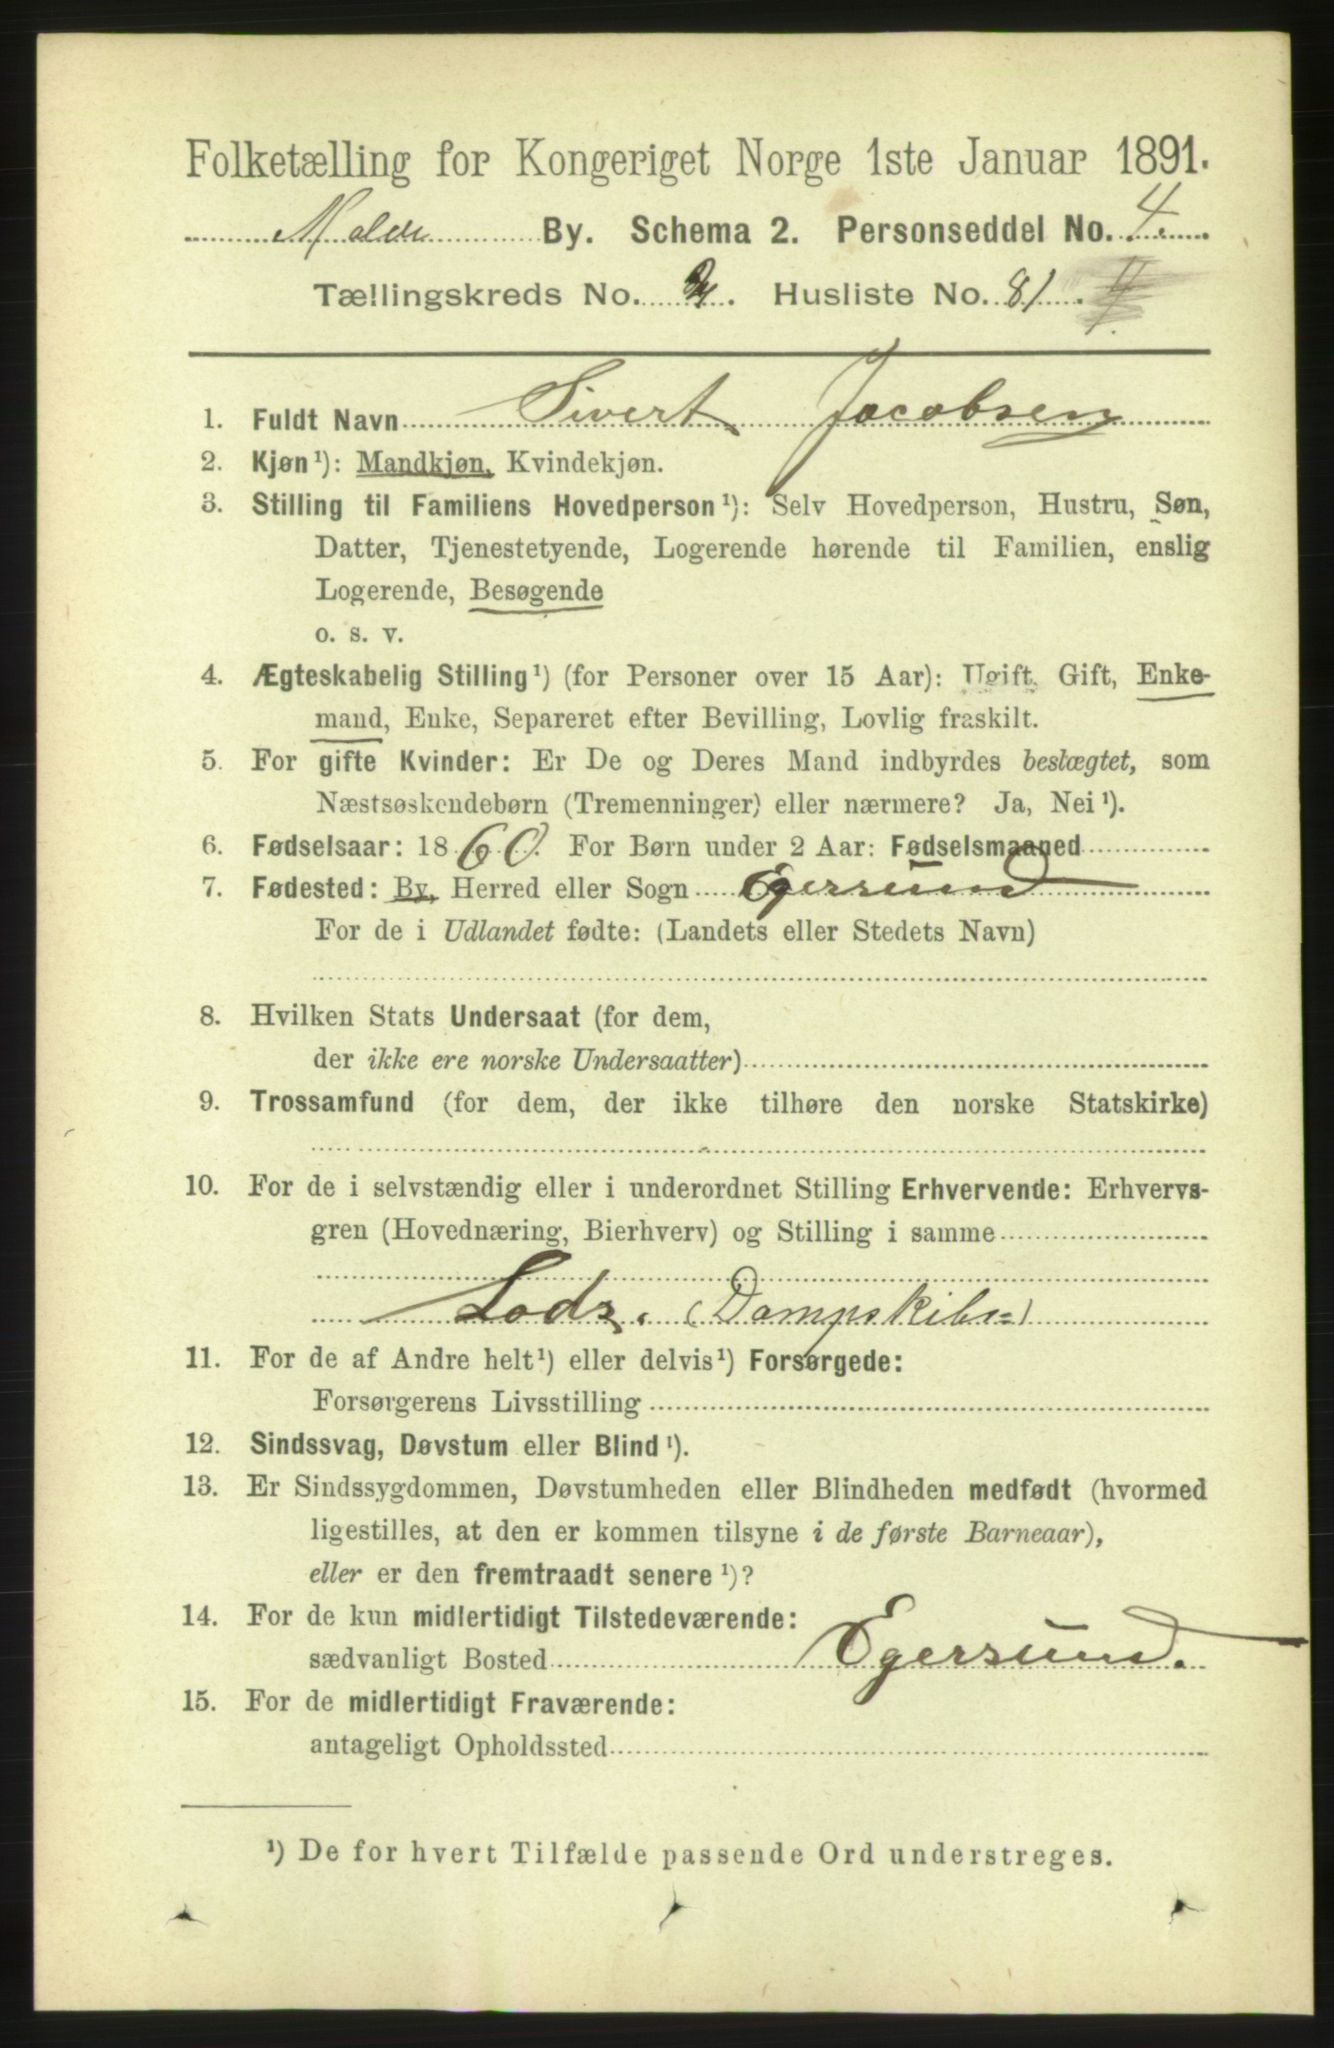 Folketælling for Kongeriget Norge 1ste Januar 1891.
Molde By. Schema 2. Personseddel No. 4.
Tællingskreds No. . Husliste No. 81.
1. Fuldt Navn Sivert Jacobsen
2. Kjøn¹): Mandkjøn, Kvindekjøn.
3. Stilling til Familiens Hovedperson¹): Selv Hovedperson, Hustru, Søn,
Datter, Tjenestetyende, Logerende hørende til Familien, enslig
Logerende, Besøgende
o. s. v.
4. Ægteskabelig Stilling¹) (for Personer over 15 Aar): Ugift, Gift, Enke-
mand, Enke, Separeret efter Bevilling, Lovlig fraskilt.
5. For gifte Kvinder: Er De og Deres Mand indbyrdes beslægtet, som
Næstsøskendebørn (Tremenninger) eller nærmere? Ja, Nei¹).
6. Fødselsaar: 1860. For Børn under 2 Aar: Fødselsmaaned
7. Fødested: By, Herred eller Sogn Egersund
For de i Udlandet fødte: (Landets eller Stedets Navn)
8. Hvilken Stats Undersaat (for dem,
der ikke ere norske Undersaatter)
9. Trossamfund (for dem, der ikke tilhøre den norske Statskirke)
10. For de i selvstændig eller i underordnet Stilling Erhvervende: Erhvervs-
gren (Hovednæring, Bierhverv) og Stilling i samme
Lods. (Dampskibs=)
11. For de af Andre helt¹) eller delvis¹) Forsørgede:
Forsørgerens Livsstilling
12. Sindssvag, Døvstum eller Blind¹).
13. Er Sindssygdommen, Døvstumheden eller Blindheden medfødt (hvormed
ligestilles, at den er kommen tilsyne i de første Barneaar),
eller er den fremtraadt senere¹)?
14. For de kun midlertidigt Tilstedeværende:
sædvanligt Bosted Egersund.
15. For de midlertidigt Fraværende:
antageligt Opholdssted
¹) De for hvert Tilfælde passende Ord understreges.